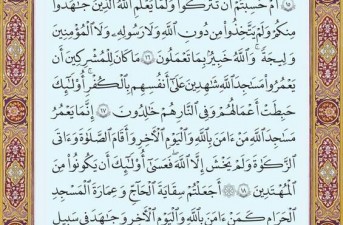 أَمْ حَسِبْتُمْ أَن تُتْرَكُوا۟ وَلَمَّا يَعْلَمِ ٱللَّهُ ٱلَّذِينَ جَٰهَدُوا۟
مِنكُمْ وَلَمْ يَتَّخِذُوا۟ مِن دُونِ ٱللَّهِ وَلَا رَسُولِهِۦ وَلَا ٱلْمُؤْمِنِينَ
وَلِيجَةً ۚ وَٱللَّهُ خَبِيرٌۢ بِمَا تَعْمَلُونَ ١٦ مَا كَانَ لِلْمُشْرِكِينَ أَن
يَعْمُرُوا۟ مَسَٰجِدَ ٱللَّهِ شَٰهِدِينَ عَلَىٰٓ أَنفُسِهِم بِٱلْكُفْرِ ۚ أُو۟لَٰٓئِكَ
حَبِطَتْ أَعْمَٰلُهُمْ وَفِى ٱلنَّارِ هُمْ خَٰلِدُونَ ١٧ إِنَّمَا يَعْمُرُ
مَسَٰجِدَ ٱللَّهِ مَنْ ءَامَنَ بِٱللَّهِ وَٱلْيَوْمِ ٱلْءَاخِرِ وَأَقَامَ ٱلصَّلَوٰةَ وَءَاتَى
ٱلزَّكَوٰةَ وَلَمْ يَخْشَ إِلَّا ٱللَّهَ ۖ فَعَسَىٰٓ أُو۟لَٰٓئِكَ أَن يَكُونُوا۟ مِنَ
ٱلْمُهْتَدِينَ ١٨ ۞ أَجَعَلْتُمْ سِقَايَةَ ٱلْحَآجِّ وَعِمَارَةَ ٱلْمَسْجِدِ
ٱلْحَرَامِ كَمَنْ ءَامَنَ بِٱللَّهِ وَٱلْيَوْمِ ٱلْءَاخِرِ وَجَٰهَدَ فِى سَبِيلِ